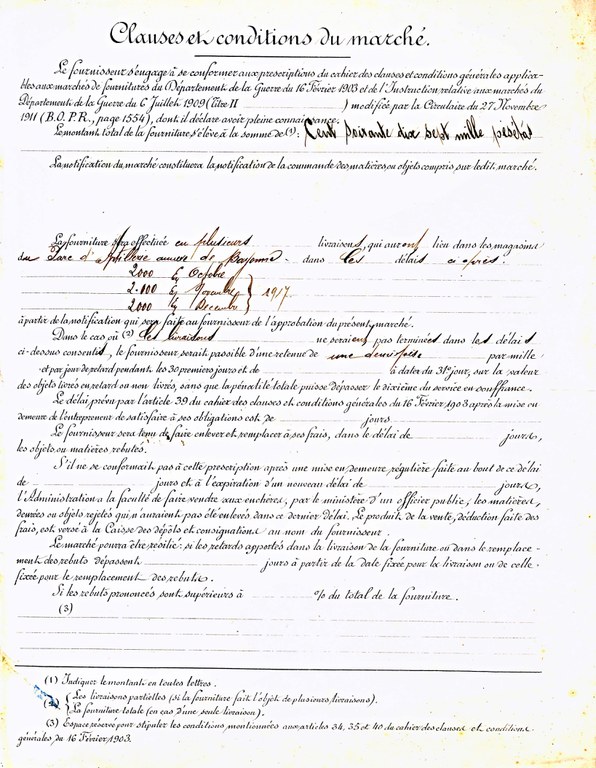 Clauses et conditions du marché.
Le fournisseur s'engage à se conformer aux prescriptions du cahier des clauses et conditions générales applica-
bles aux marchés de fournitures du Département de la Guerre du 16 Février 1903 et de l'Instruction relative aux marchés du
Département de la Guerre du 6 Juillet 1909 (titre II ) modifiée par la Circulaire du 27 Novembre
1911 (B.O.P.R., page 1554), dont il déclare avoir pleine connaissance.
Le montant total de la fourniture s'élève à la somme de (1): Cent soixante dix sept mille pesetas
La notification du marché constituera la notification de la commande des matières ou objets compris sur ledit marché.
La fourniture sera effectuée en plusieurs livraisons, qui auront lieu dans les magasins
du Parc d'Artillerie annexe de Bayonne dans les délais ci après:
2000 Octobre
2.000 Novembre } 1917
2000 Décembre
à partir de la notification qui sera faite au fournisseur de l'approbation du présent marché.
Dans le cas où (2) les livraisons ne seraient pas terminées dans les délais
ci-dessous consentis, le fournisseur serait passible d'une retenue de une demi par mille
et par jour de retard pendant les 30 premiers jours et de à dater du 31e jour, sur la valeur
des objets livrés en retard ou non livrés, sans que la pénalité totale puisse dépasser le dixième du service en souffrance.
Le délai prévu par l'article 39 du cahier des clauses et conditions générales du 16 Février 1903 après la mise en
demeure de l'entrepreneur de satisfaire à ses obligations est de jours
Le fournisseur sera tenu de faire enlever et remplacer à ses frais, dans le délai de jours,
les objets ou matières rebutés.
S'il ne se conformait pas à cette prescription après une mise en demeure régulière faite au bout de ce délai
de jours et à l'expiration d'un nouveau délai de jours,
l'Administration a la faculté de faire vendre aux enchères, par le ministère d'un officier public, les matières,
denrées ou objets rejetés qui n'auraient pas été enlevés dans ce dernier délai. Le produit de la vente, déduction faite des
frais, est versé à la Caisse des dépôts et consignations au nom du fournisseur.
Le marché pourra être résilié: si les retards apportés dans la livraison de la fourniture ou dans le remplace-
ment des rebuts dépassent jours à partir de la date fixée pour la livraison ou de celle
fixée pour le remplacement des rebuts.
Si les rebuts prononcés sont supérieurs à % du total de la fourniture.
(3)
(1) Indiquer le montant en toutes lettres.
(2) { Les livraisons partielles (si la fourniture fait l'objet de plusieurs livraisons).
La fourniture totale (en cas d'une seule livraison).
(3) Espace réservé pour stipuler les conditions mentionnées aux articles 34, 35 et 40 du cahier des clauses et conditions
générales du 16 Février 1903.